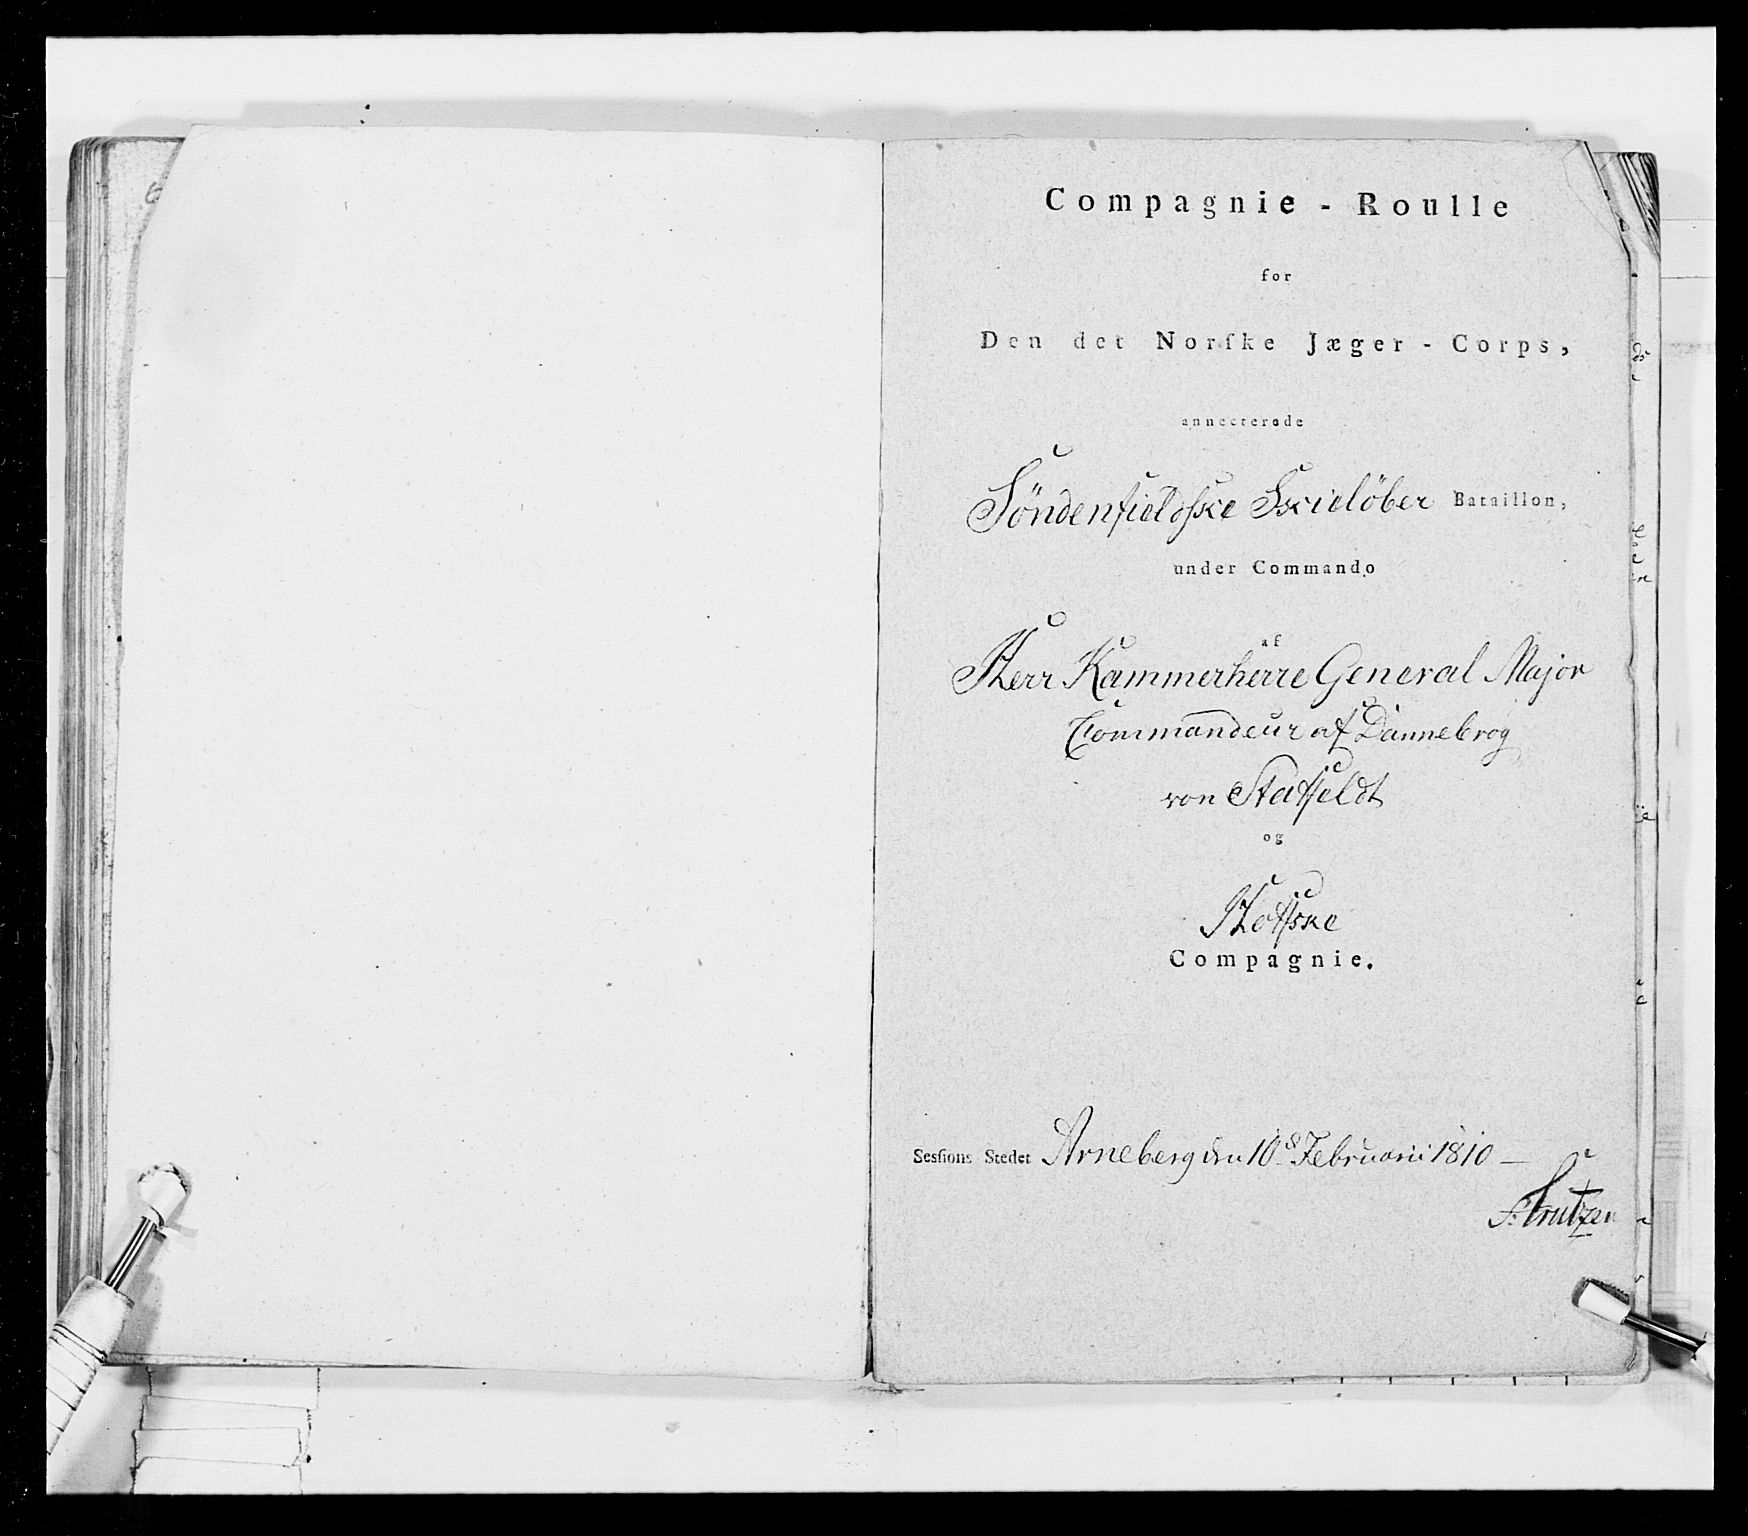 Compagnie - Roulle
for
Den det Norſke Jæger - Corps,
annecterede
Söndenfieldſke Skielöber Bataillon,
under Commando
af
Herr Kammerherre General Major
Commandeur af Dannebrog
von Staffeldt
og
Hoffske
Compagnie.
Sesſions Stedet Arneberg den 10d Februarii 1810 —